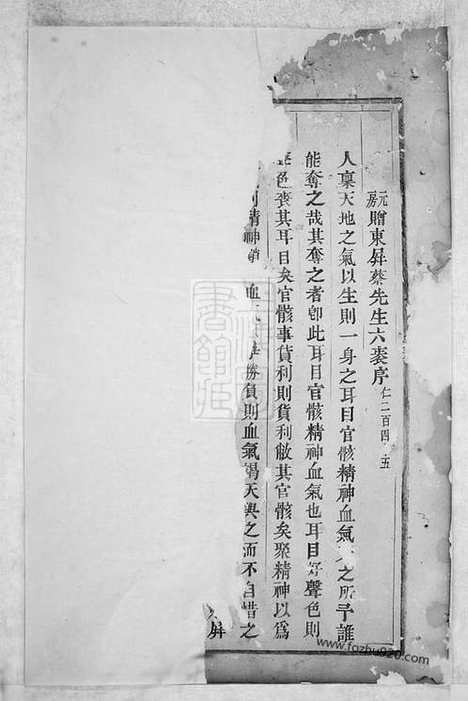 元房贈東屏蔡先生六袠序仁二百四 五
人稟天地之氣以生則一身之耳目官骸精神血氣 之所予誰
能奪之哉其奪之者卽此耳目官骸精神血氣也耳目好聲色則
聲色喪其耳目矣官骸事貨利則貨利敝其官骸矣聚精神以爲
則精神 血 勝負則血氣竭天與之而不自惜之
屏
www.fozhu920.com